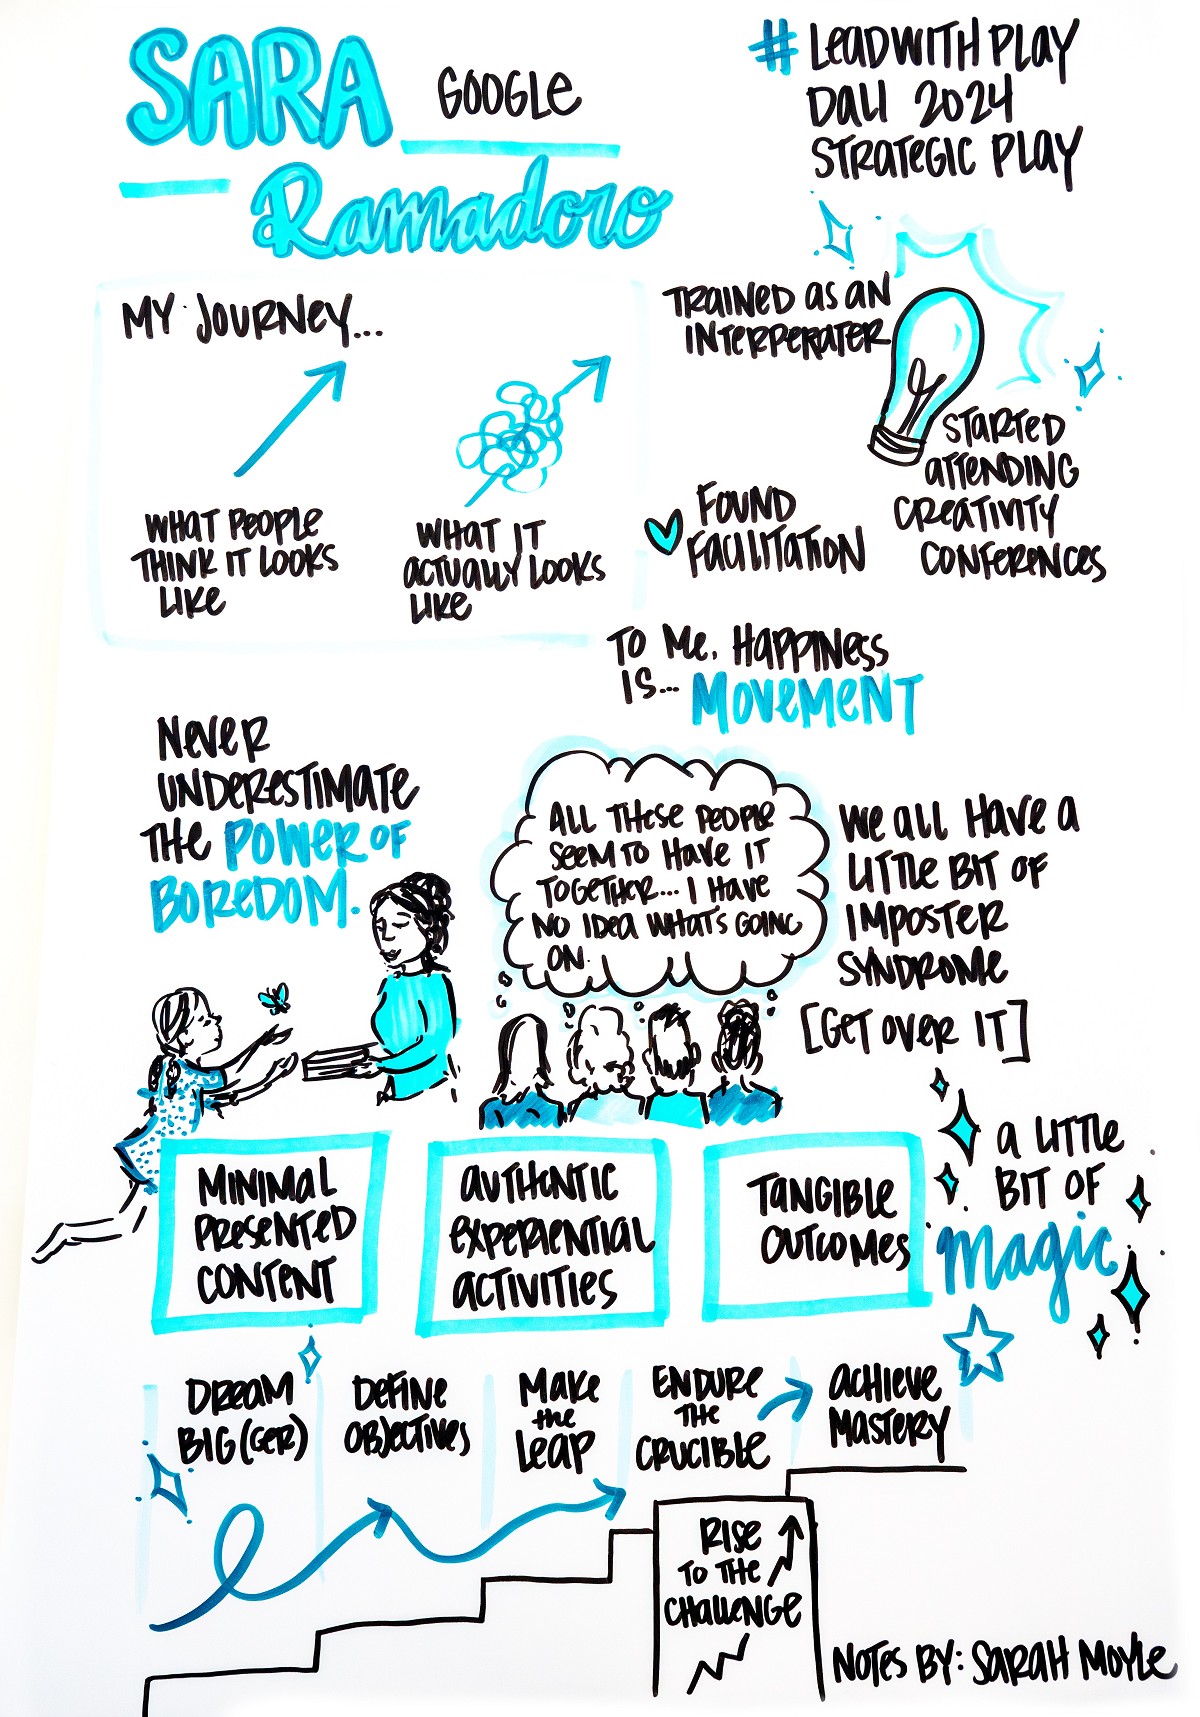 SARA
GOOGLE
Ramadoro
# LEADWITH PLAY
DALI 2024
STRATEGIC PLAY
MY JOURNEY...
WHAT PEOPLE
THINK IT LOOKS
LIKE
WHAT IT
ACTUALLY LOOKS
LIKE
TRAINED AS AN
INTERPERATER
STARTED
ATTENDING
CREATIVITY
CONFERENCES
FOUND
FACILITATION
TO ME, HAPPINESS
IS... MOVEMENT
NEVER
UNDERESTIMATE
THE POWER OF
BOREDOM.
ALL THESE PEOPLE
SEEM TO HAVE IT
TOGETHER... I HAVE
NO IDEA WHAT'S GOING
ON.
WE ALL HAVE A
LITTLE BIT OF
IMPOSTER
SYNDROME
[GET OVER IT]
MINIMAL
PRESENTED
CONTENT
AUTHENTIC
EXPERIENTIAL
ACTIVITIES
TANGIBLE
OUTCOMES
A LITTLE
BIT OF
magic
DREAM
BIG (GER)
DEFINE
OBJECTIVES
MAKE
the
LEAP
ENDURE
THE
CRUCIBLE
ACHIEVE
MASTERY
RISE
TO THE
CHALLENGE
NOTES BY: SARAH MOYLE